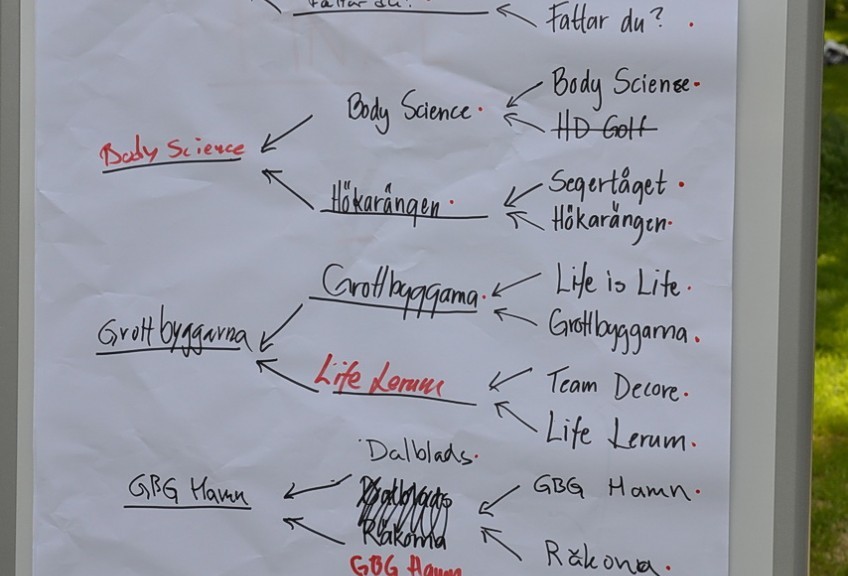 Fattar du?
Fattar du?
Body Science
HD Golf
Body Science
Body Science
Segertåget
Hökarängen
Hökarängen
Life is Life
Grottbyggarna
Grottbyggarna
Grottbyggarna
Team Decore
Life Lerum
Life Lerum
Dalblads
Dalblads
GBG Hamn
GBG Hamn
Räkorna
Räkona
GBG Hamn